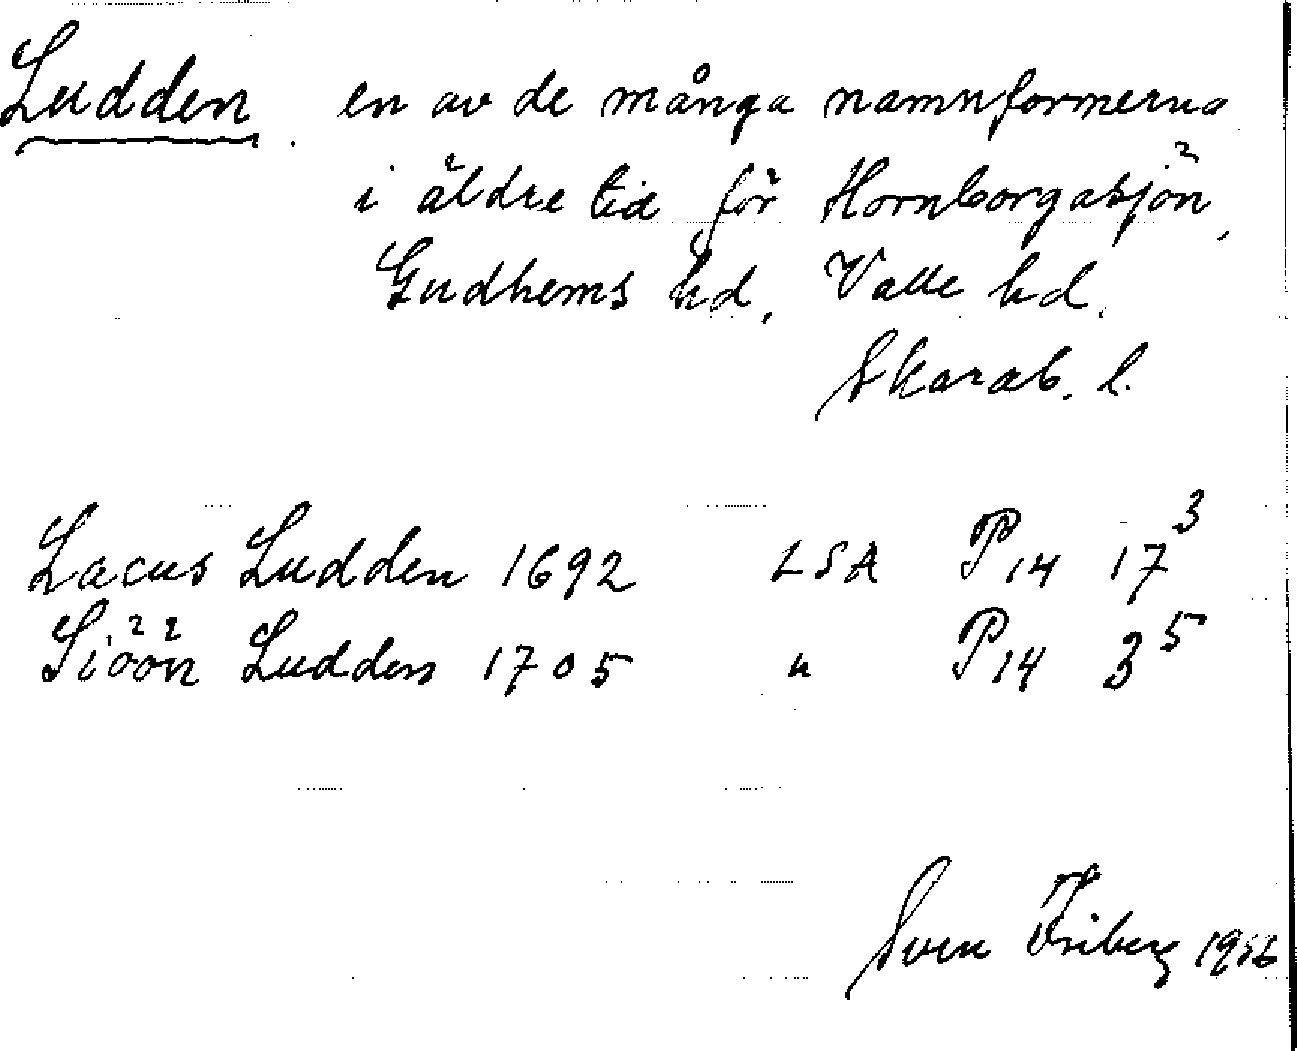 Ludden. en av de många namnformerna
i äldre tid för Hornborgasjön,
Gudhems hd, Valle hd.
Skarab. l.
Lacus Ludden 1692 LSA P14 17³
Siöön Ludden 1705 " P14 3⁵
Sven Friberg 1956